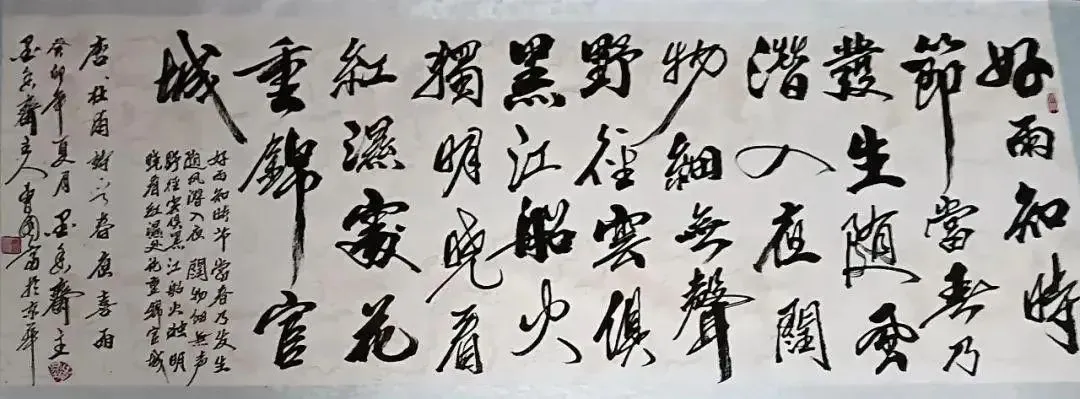 好雨知時
節當春乃
發生随風
潛入夜閏
物細無聲
野徑雲俱
黑江船火
獨明曉看
紅濕處花
重錦官
城
好雨知時节 當春乃发生
随风潜入夜 閏物细無声
野径雲俱黑 江船火独明
晓看红濕处 花重锦官城
唐 杜甫詩 春夜喜雨
癸卯年夏月 墨香齋主
墨香齋主人 於京华